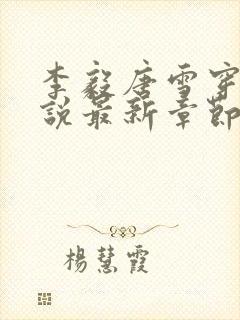 李毅唐雪穿
說最新章節
楊慧霞